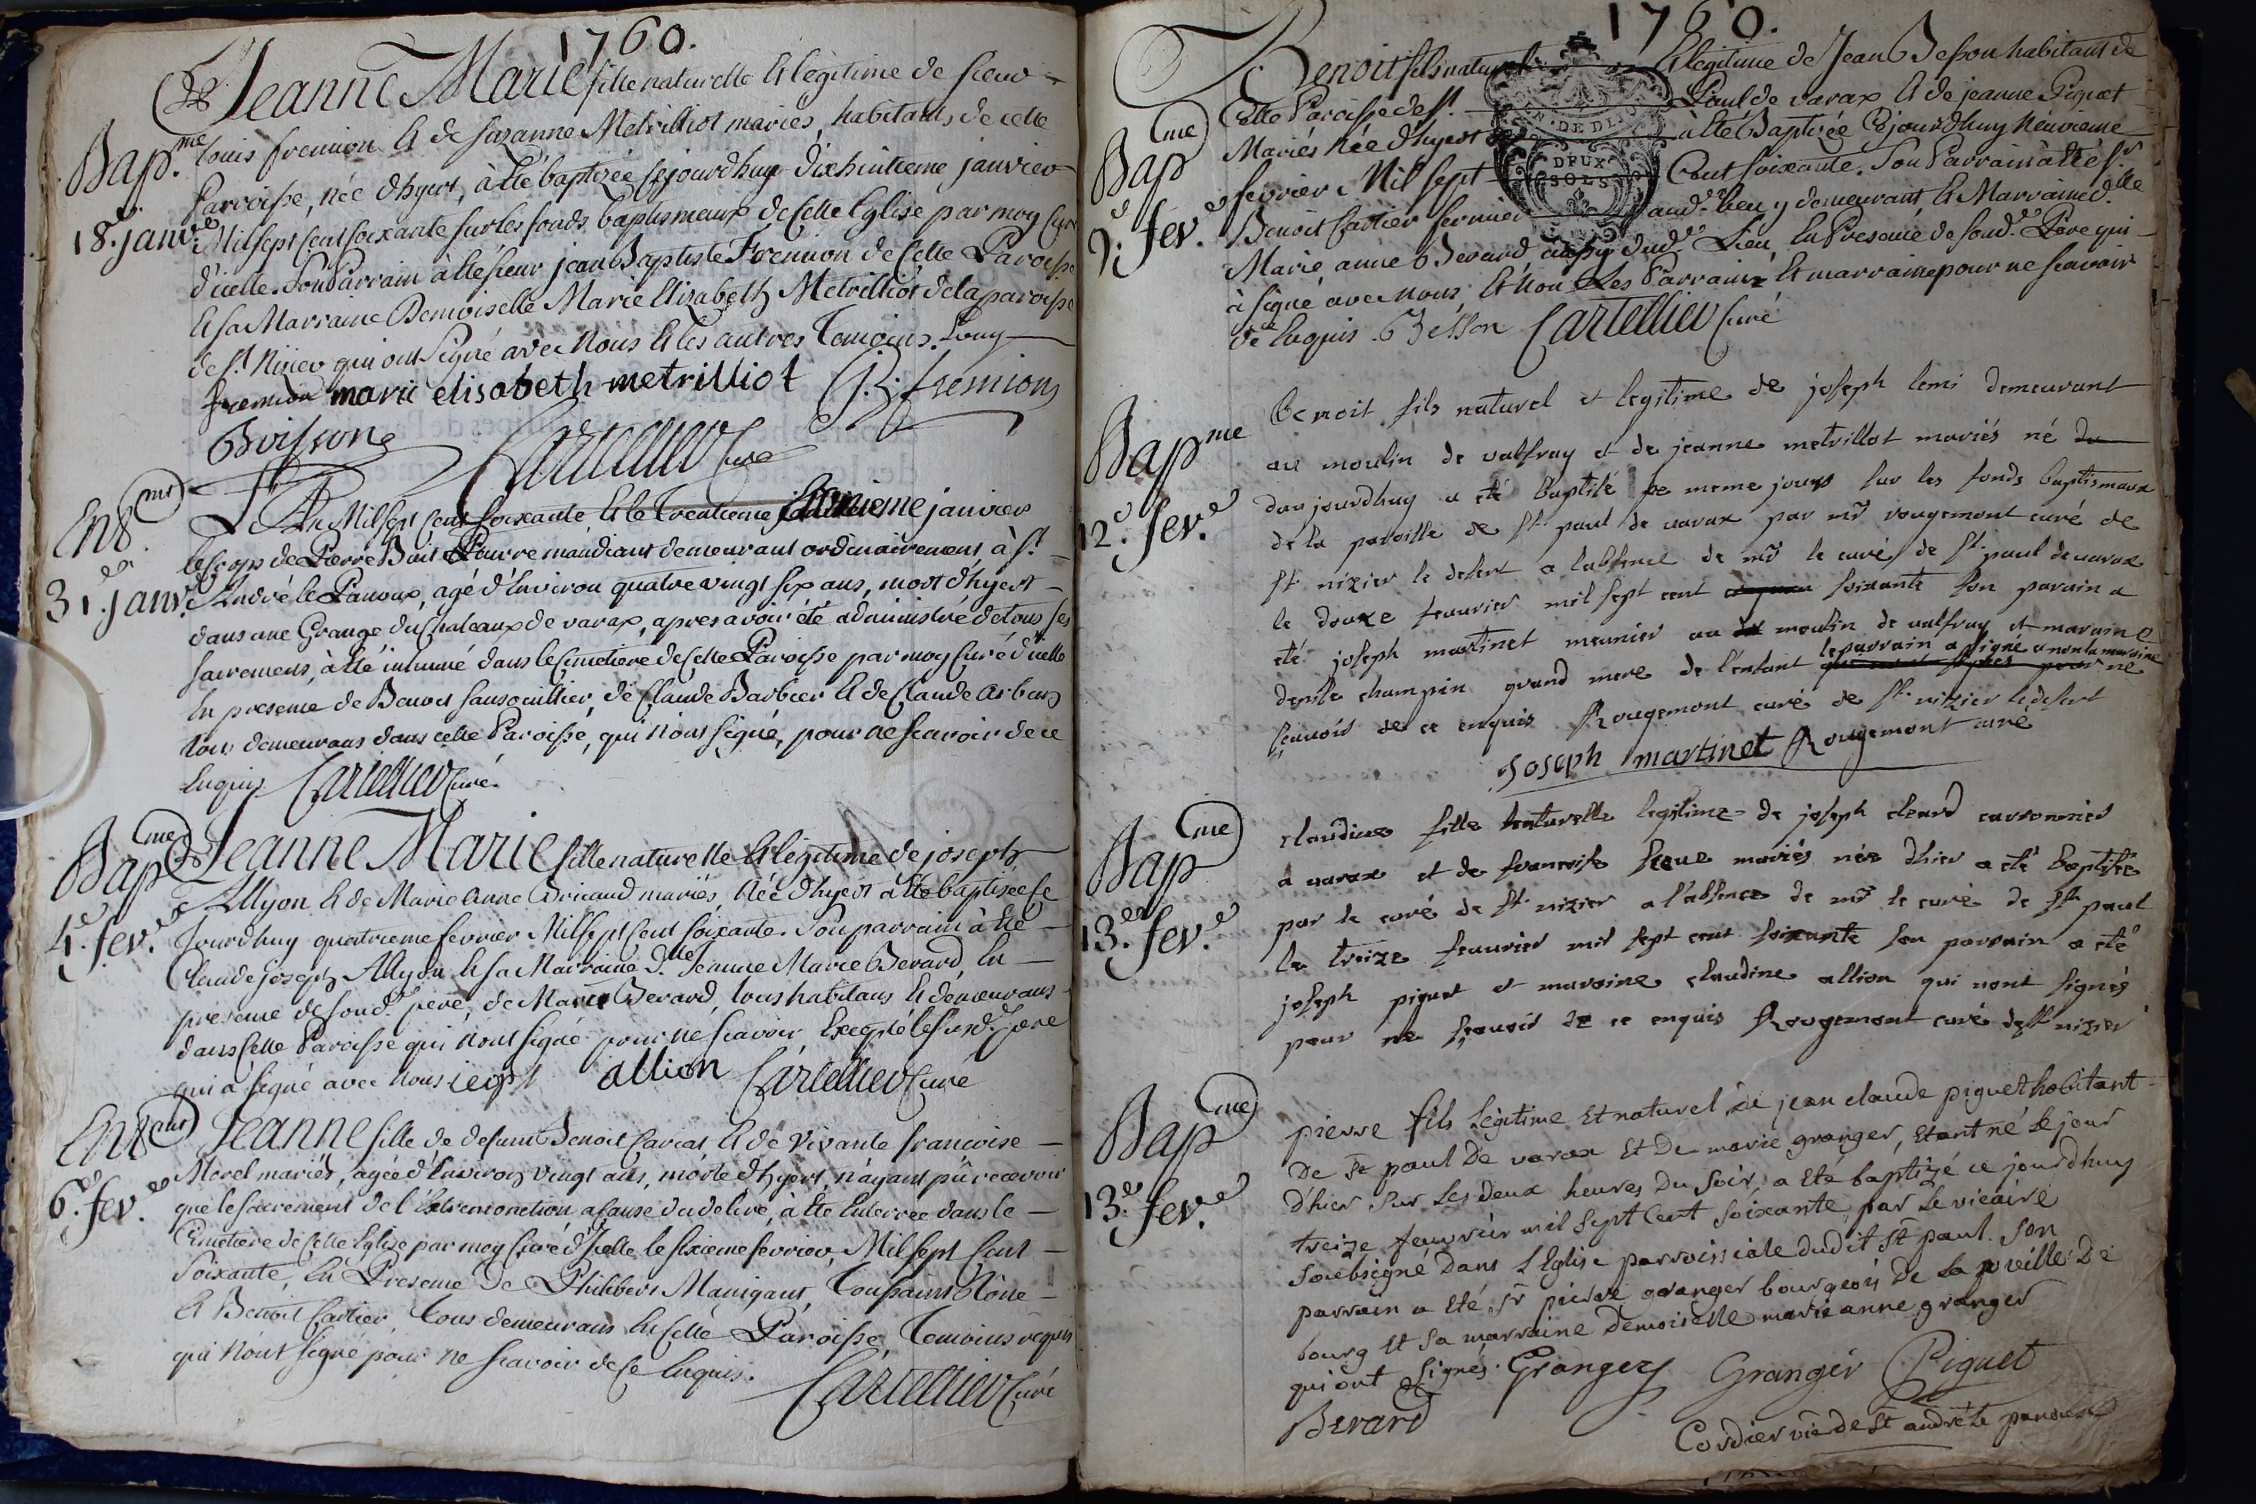 1760.
Jeanne Marie fille naturelle et légitime de sieur
Bap.me louis fremion et de suzanne Metrilliot mariés, habitants de cette
Parroisse, née d'hyert, à été baptizée cejourdhuy dixhuitieme janvier
18.e janv.er Mil sept cent soixante sur les fonds baptismaux de cette Eglise par moy Curé
d'icelle. Son Parrain à été sieur jean Baptiste Fremion de cette Paroisse
et sa Marraine Demoiselle Marie Elizabeth Metrilliot de la paroisse
de st. Nizier qui ont signé avec nous et les autres Temoins. Louy
fremion marie elisabeth metrilliot J.B. fremion
Boisson Cartellier Curé
Ent.mt L'An Mil sept cent soixante et le Trentieme janvier
le corps de Pierre Buit Pauvre mandiant demeurant ordinairement à st.
31.e janv.er André le Panoux, agé d'environ quatre vingt six ans, mort d'hyert
dans une Grange du Chateaux de varax, apres avoir été administré de tous ses
sacremens, à été inhumé dans le Cimetiere de cette Paroisse par moy Curé d'icelle
en presence de Benoit sansouillier, de Claude Barbier et de Claude
tous demeurans dans cette Paroisse, qui n'ont signé, pour ne scavoir de ce
Enquis Cartellier Curé.
Bap.me Jeanne Marie fille naturelle et légitime de joseph
Allyon et de Marie Anne Bricaud mariés, née d'hyert à été baptisée ce
4.e fev.er Jourdhuy quatrieme fevrier Mil sept cent soixante. Son parrain à été
Claude joseph Allyon et sa Marraine d.lle Jeanne Marie Berard, En
presence de soud.t pere, de Marie Berard, tous habitans et demeurans
dans cette Paroisse qui n'ont signé pour ne scavoir, Excepté le susd.t Pere
qui à signé avec nous allion Cartellier Curé
Ent.mt Jeanne fille de defunt Benoit Cariat et de Vivante francoise
Morel mariés, agée d'Environ vingt ans, morte d'hyert, n'ayant pû recevoir
6.e fev.er que le sacrement de l'Extremonction a cause du delire, à été Enterrée dans le
Cimetiere de cette Eglise par moy Curé d'Icelle le sixieme fevrier, Mil sept Cent
Soixante, En Presence de Philibert Manigant, Toussaint
et Benoit Cartier, Tous demeurans En cette Paroisse, Temoins requis
qui n'ont signé pour ne scavoir de ce Enquis.
Cartellier Curé
1760.
Benoit fils naturel Et légitime de Jean Besson habitant de
GN. DE DIJON
DEUX
SOLS
Cette Paroisse de st. Paul de varax et de jeanne Piquet
Bap.me Mariés née d'hyert à été Baptizée Cejourdhuy Neuvieme
9.e fev.er fevrier Mil sept Cent soixante. Son Parrain à été s.r
Benoit Cartier fermier aud.t lieu y demeurant, et Marraine d.lle
Marie anne Berard, aussy dud.t Lieu, En Presence de soud.t Pere qui
à signé avec nous, et non les Parrain et marraine pour ne scavoir
de Enquis. Besson Cartellier Curé
Bap.me benoit fils naturel et legitime de joseph lemi demeurant
au moulin de valfray et de jeanne metrillot mariés né
12.e fev.er daujourdhuy a eté baptisé ce meme jours sur les fonds baptismaux
de la paroisse de st. paul de varax par mr rougemont curé de
st. nizier le desert a labsence de mr le curé de st. paul de varax
le douze feuvrier mil sept cent soixante son parain a
eté joseph martinet meunier au moulin de valfray et maraine
denise champin grand mere de l'enfant le parrain a signé a non la maraine ne
sçauoir de ce enquis Rougemont curé de st. nizier le desert
joseph martinet Rougemont curé
Bap.me claudine fille naturelle legitime de joseph clerd
a varax et de francoise mariés née dhier a eté baptisée
par le curé de st. nizier a l'absence de mr le curé de st. paul
13.e fev.er le treize feauvrier mil sept cent soixante son parrain a eté
joseph piquet et maraine claudine allion qui nont signés
pour ne sçauoir de ce enquis Rougemont curé de st nizier
Bap.me pierre fils legitime Et naturel de jean claude piguet habitant
De st paul De varax Et De marie granger, Etant né Le jour
13.e fev.er D'hier sur Les deux heures Du soir, a Eté baptizé ce jourd'huy
treize feuvrier mil sept Cent soixante par Le vicaire
soubsigné Dans L'Eglise parroissiale dudit st paul. Son
parrain a Eté sr pierre granger bourgeois De La ville De
bourg Et sa marraine Demoiselle marie anne granger
qui ont signés. Granger Granger Piguet
Berard
Cordier vic de st andré le panoux